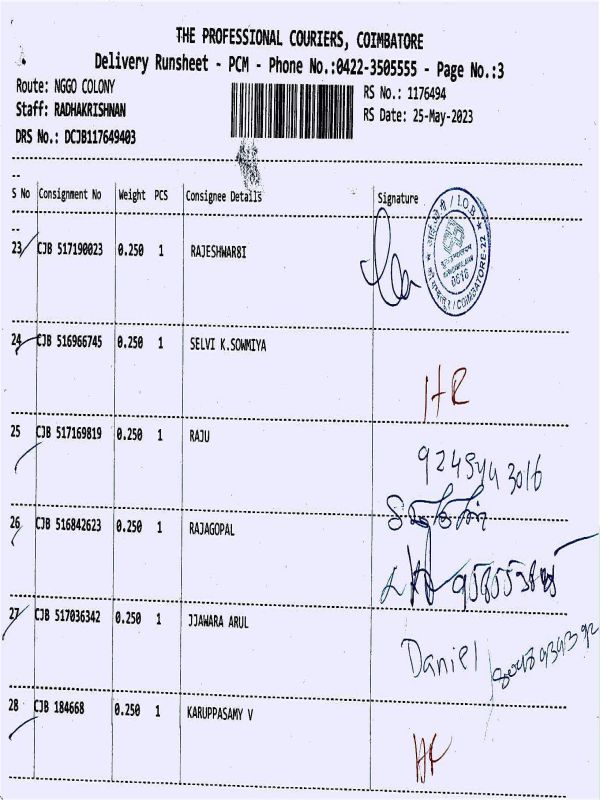 THE PROFESSIONAL COURIERS, COIMBATORE
Delivery Runsheet - PCM - Phone No.:0422-3505555 - Page No.:3
Route: NGGO COLONY
RS No.: 1176494
Staff: RADHAKRISHNAN
RS Date: 25-May-2023
DRS No.: DCJB117649403
S No Consignment No Weight PCS Consignee Details Signature
23 CJB 517190023 0.250 1 RAJESHWAR8I
I.O.B
COIMBATORE-22
24 CJB 516966745 0.250 1 SELVI K.SOWMIYA
HR
25 CJB 517169819 0.250 1 RAJU
26 CJB 516842623 0.250 1 RAJAGOPAL
27 CJB 517036342 0.250 1 JJAWARA ARUL
Daniel
28 CJB 184668 0.250 1 KARUPPASAMY V